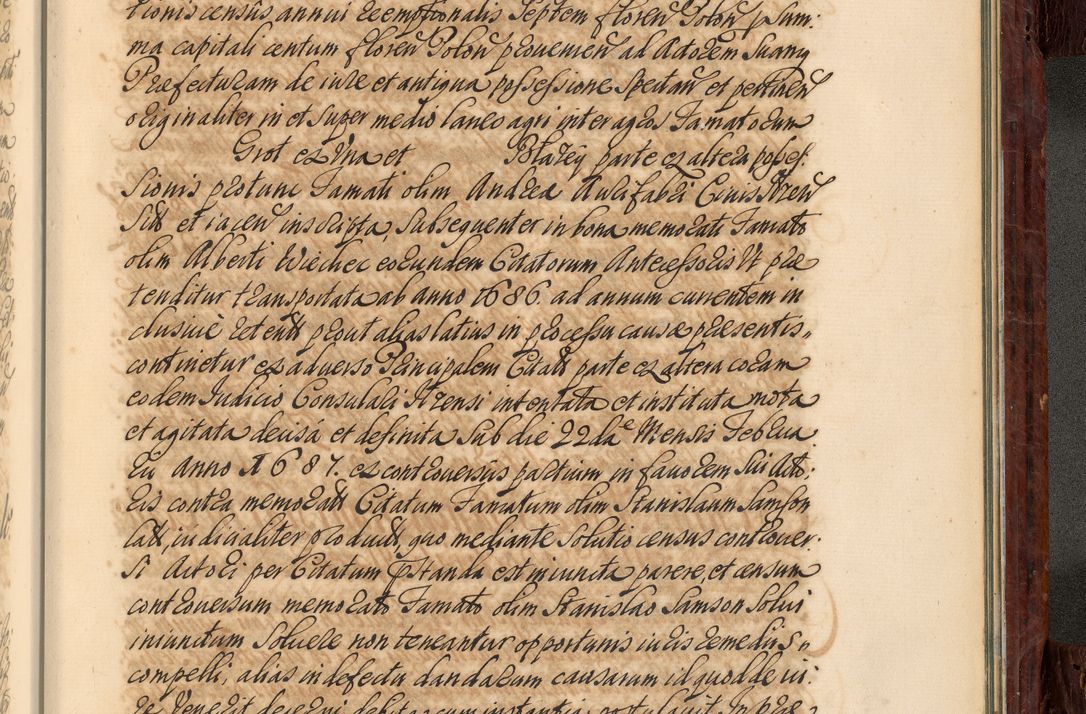 tionis census annui Reemptionalis Septem floren Polon p Sum:
ma capitali centum floren Polon provenien ad Actorem Suamq
Præfecturam de iure et antiqua possessione Spectan et pertinen
originaliter in et Super medio laneo agri inter agros Famatorum
Grot ex Una et Błazey parte ex altera posses:
Sionis protunc Famati olim Andreæ Aurifabri Civis Szen
Sis et iacen inscripta, Subsequenter in bona memorati Famati
olim Alberti Wiechec eorundem Citatorum Antecessoris Ut præ
tenditur transportata ab anno 1686. ad annum currentem in
clusive retent prout alias latius in processu causæ præsentis
continetur ex adverso Principalem Citatt parte ex altera coram
eodem Iudicio Consulali Szensi intentata et instituta mota
et agitata decisa et definita Sub die 22da Mensis Februa
rii anno 1687. ex controversiis partium in favorem Sui Acto:
ris contra memoratt Citatum Famatum olim Stanislaum Samson
latt, iudicialiter productt quo mediante Solutio census controver
Si Actori per Citatum præstanda est iniuncta parere, et censum
controversum memorato Famato olim Stanislao Samson Solvi
iniunctum Solvere non teneantur opportunis iuris remediis
compelli, alias in defectu dandarum causarum id quod de iu:
re Venerit decerni debita cum instantia postulavit In præ